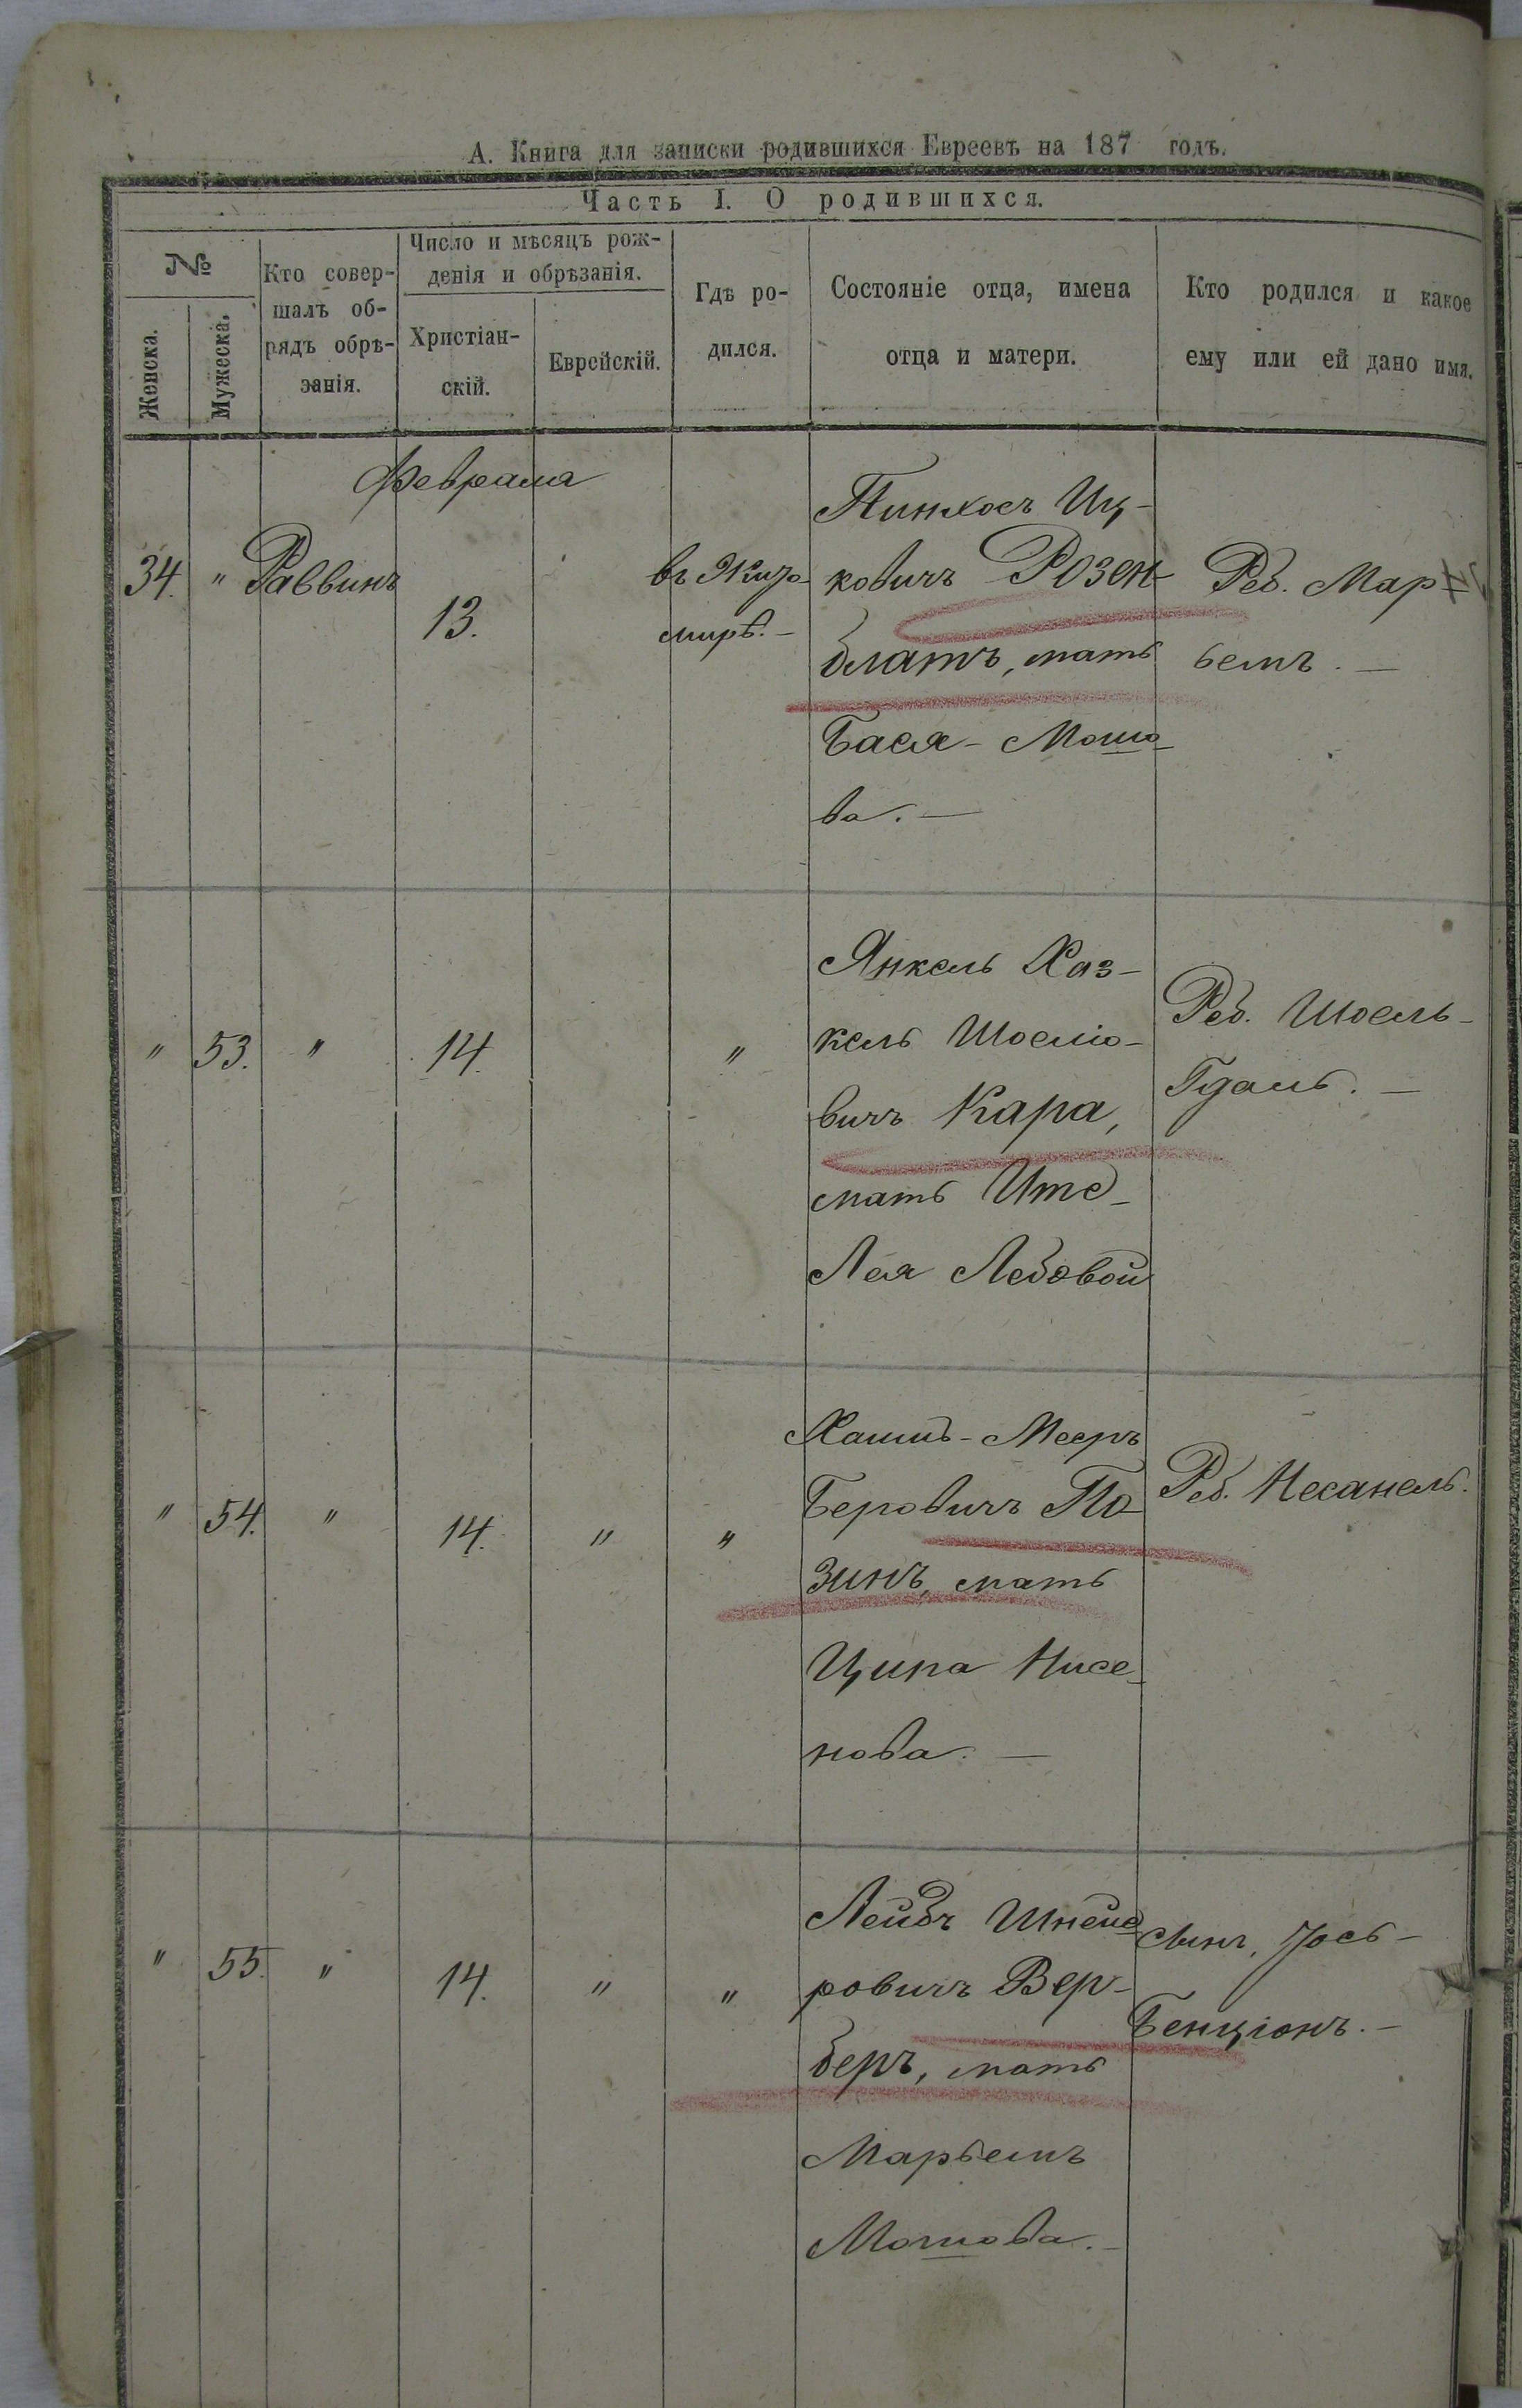 А. Книга для записки родившихся Евреевъ на 187 годъ.
Часть I. О родившихся.
№
Женска.
Мужеска.
Кто совер-
шалъ об-
рядъ обрѣ-
занія.
Число и мѣсяцъ рож-
денія и обрѣзанія.
Христіан-
скій.
Еврейскій.
Гдѣ ро-
дился.
Состояніе отца, имена
отца и матери.
Кто родился и какое
ему или ей дано имя.
Февраля
34. " Раввинъ
13.
въ Жито-
мирѣ. —
Пинхосъ Иц-
ковичъ Розен-
блатъ, мать
Бася - Мошо-
ва. —
Реб. Мар-
ьемъ. —
" 53. " 14. "
Янкель Хаз-
кель Шоелio-
вичъ Кара,
мать Ите-
Лея Лебовой
Реб. Шоель-
Гдаль. —
" 54. " 14. " "
Хаимъ - Мееръ
Беровичъ По-
зинъ, мать
Ципа Нисе-
нова. —
Реб. Несанель.
" 55. " 14. " "
Лейбъ Шнеие-
ровичъ Вер-
беръ, мать
Марьемъ
Мошова. —
сынъ, Іось -
Бенціонъ. —